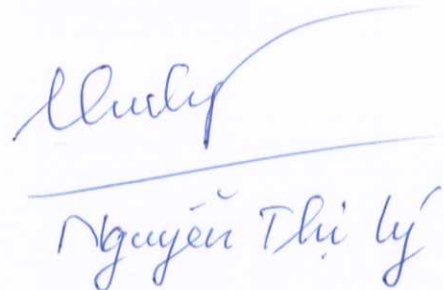 Nguyễn Thị Lý